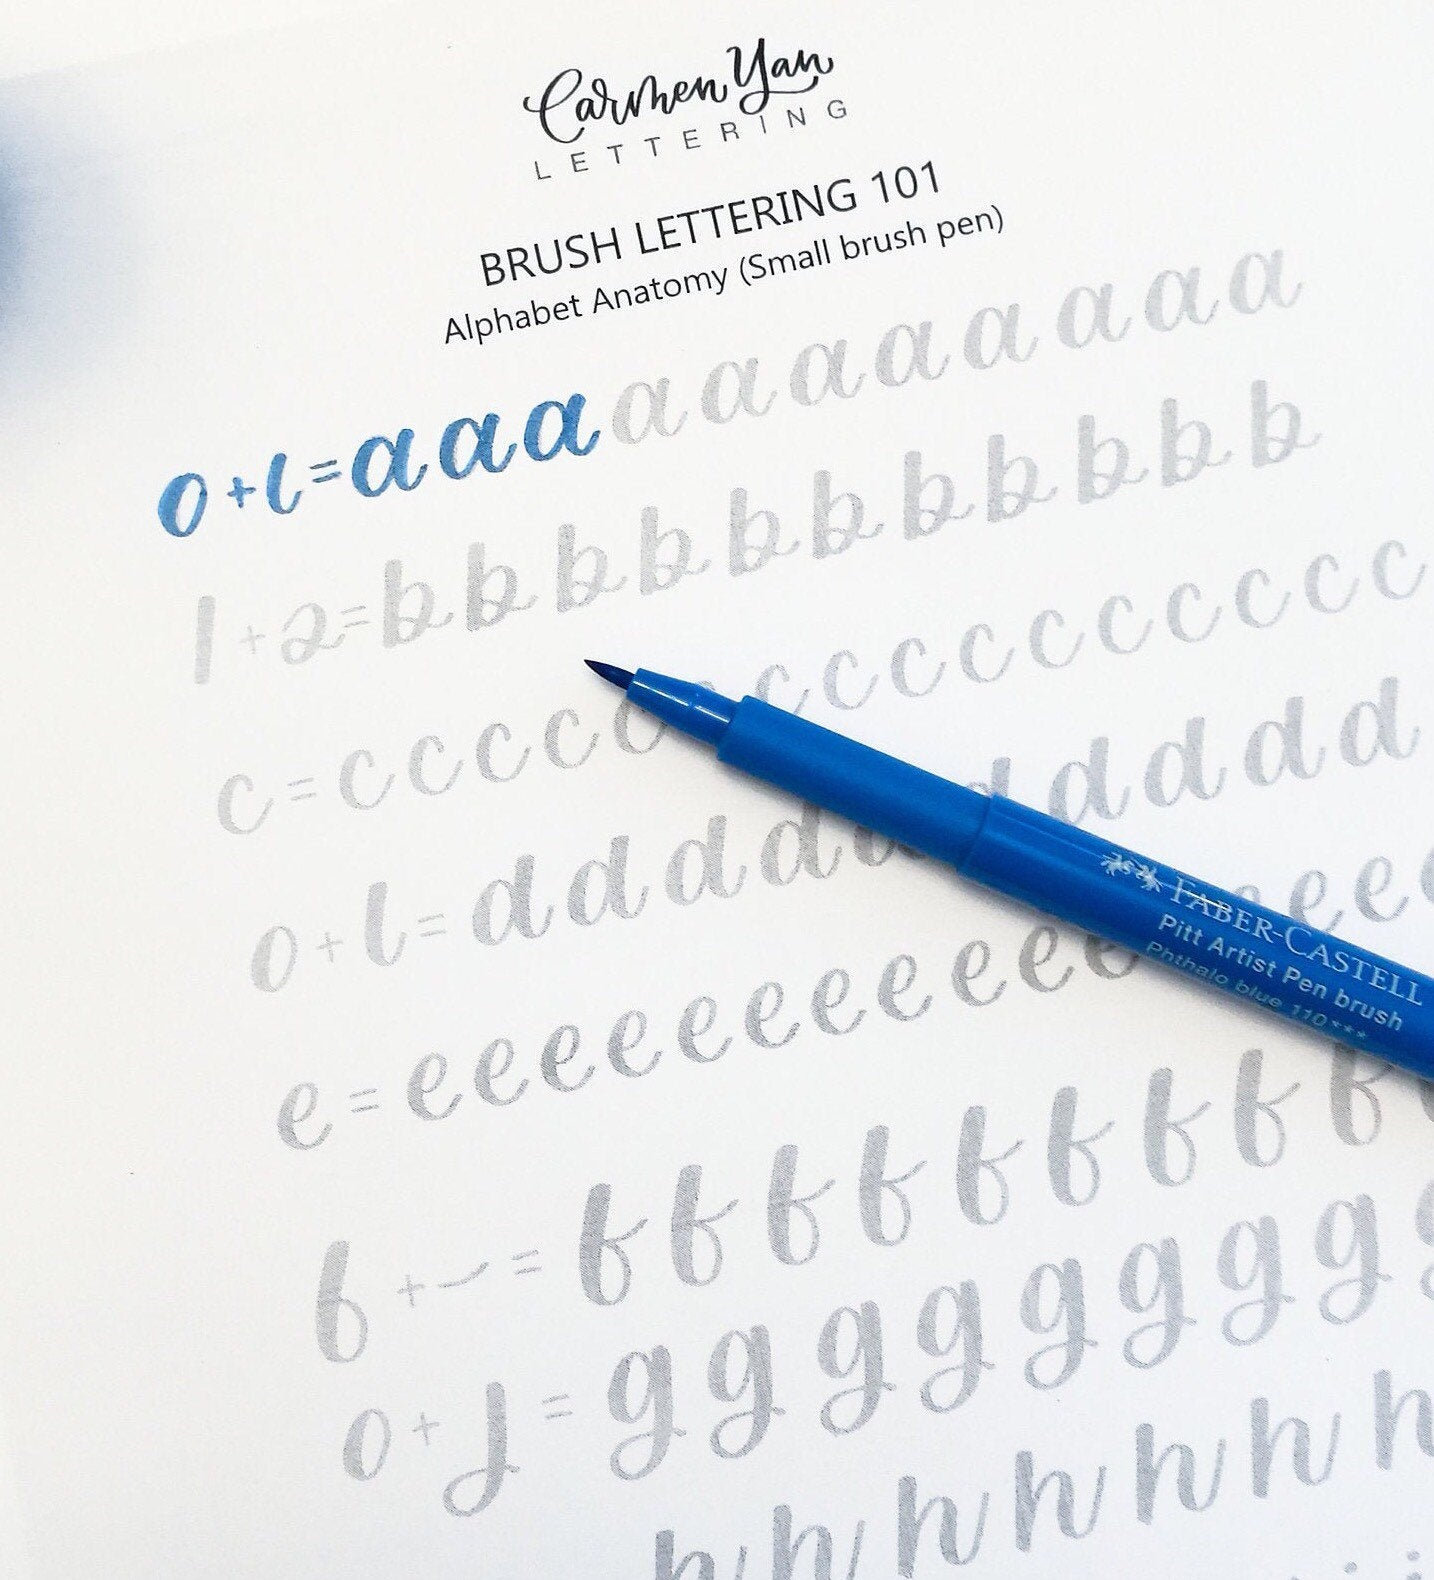 Carmen Yan
LETTERING
BRUSH LETTERING 101
Alphabet Anatomy (Small brush pen)
o + l = a a a a a a a a a a a
l + 2 = b b b b b b b b b b b
c = c c c c c c c c c c c c c c c
o + l = d d d d d d d d d d
e = e e e e e e e e e e e e e e
f + - = f f f f f f f f f
o + j = g g g g g g g g
h h h h h h h
FABER-CASTELL
Pitt Artist Pen brush
Phthalo blue 110***